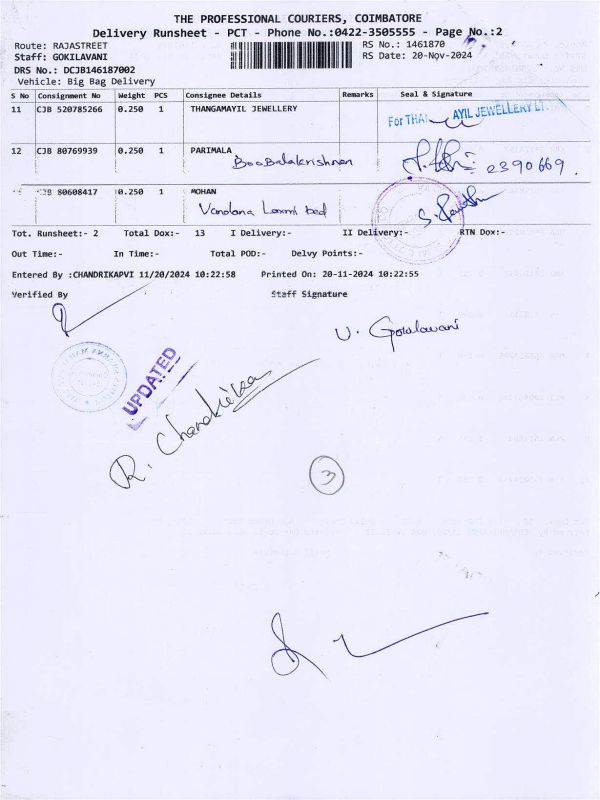 THE PROFESSIONAL COURIERS, COIMBATORE
Delivery Runsheet - PCT - Phone No.:0422-3505555 - Page No.:2
Route: RAJASTREET RS No.: 1461870
Staff: GOKILAVANI RS Date: 20-Nov-2024
DRS No.: DCJB146187002
Vehicle: Big Bag Delivery
S No Consignment No Weight PCS Consignee Details Remarks Seal & Signature
11 CJB 520785266 0.250 1 THANGAMAYIL JEWELLERY
For THA AYIL JEWELLERY LT
12 CJB 80769939 0.250 1 PARIMALA
BooBalakrishnan 2390669.
CJB 80608417 0.250 1 MOHAN
Vandana Laxmi
Tot. Runsheet:- 2 Total Dox:- 13 I Delivery:- II Delivery:- RTN Dox:-
Out Time:- In Time:- Total POD:- Delvy Points:-
Entered By :CHANDRIKAPVI 11/20/2024 10:22:58 Printed On: 20-11-2024 10:22:55
Verified By Staff Signature
U. Gokilavani
UPDATED
R. Chandrika
3